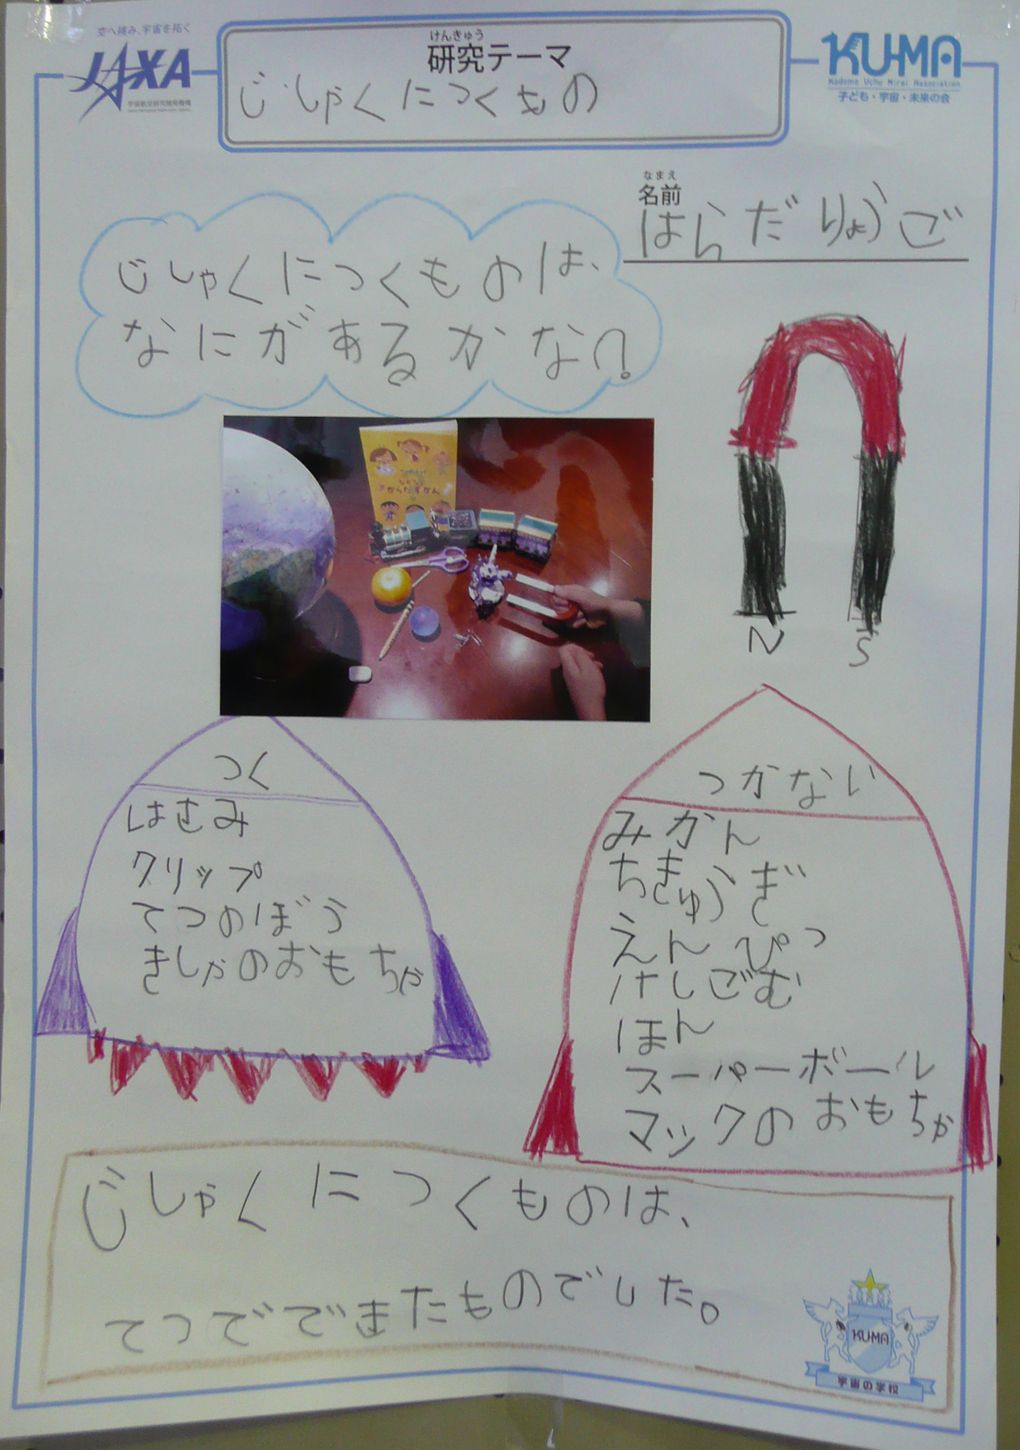 空へ挑み、宇宙を拓く
JAXA
宇宙航空研究開発機構
けんきゅう
研究テーマ
じしゃくにつくもの
KU-MA
Kodomo Uchu Mirai Association
子ども・宇宙・未来の会
なまえ
名前
はらだりょうご
じしゃくにつくものは、
なにがあるかな?
からだずかん
N S
つく
はさみ
クリップ
てつのぼう
きしゃのおもちゃ
つかない
みかん
ちきゅうぎ
えんぴつ
けしごむ
ほん
スーパーボール
マックのおもちゃ
じしゃくにつくものは、
てつでできたものでした。
KUMA
宇宙の学校